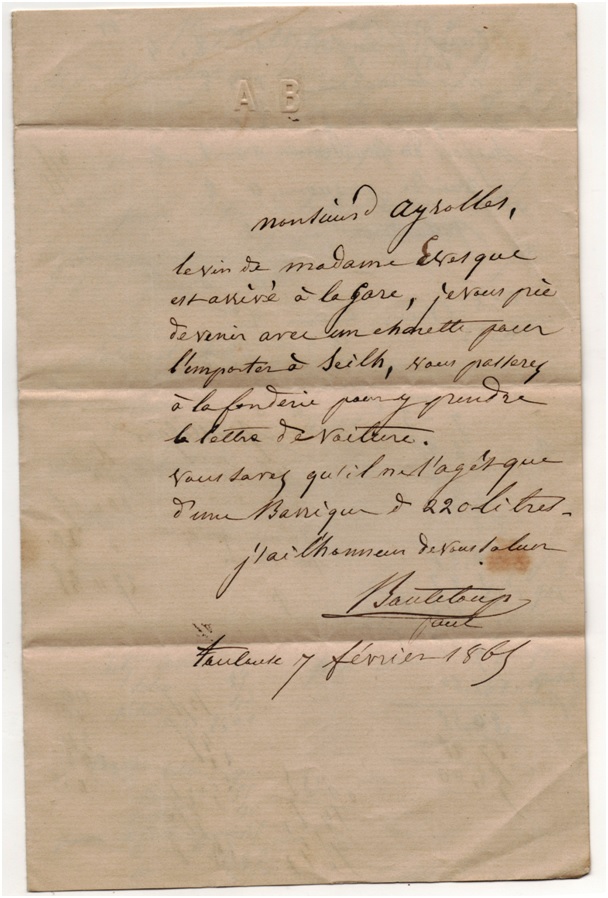 A B
Monsieur Ayrolles,
le vin de madame Evesque
est arrivé à la Gare, je vous prie
de venir avec un charette pour
l'emporter à Seilh, vous passerez
à la fonderie pour y prendre
la lettre de voiture.
vous savez qu'il ne s'agit que
d'une Barrique d 220 litres -
j'ai l'honneur de vous saluer
Bouteloup
Toulouse 7 février 1865